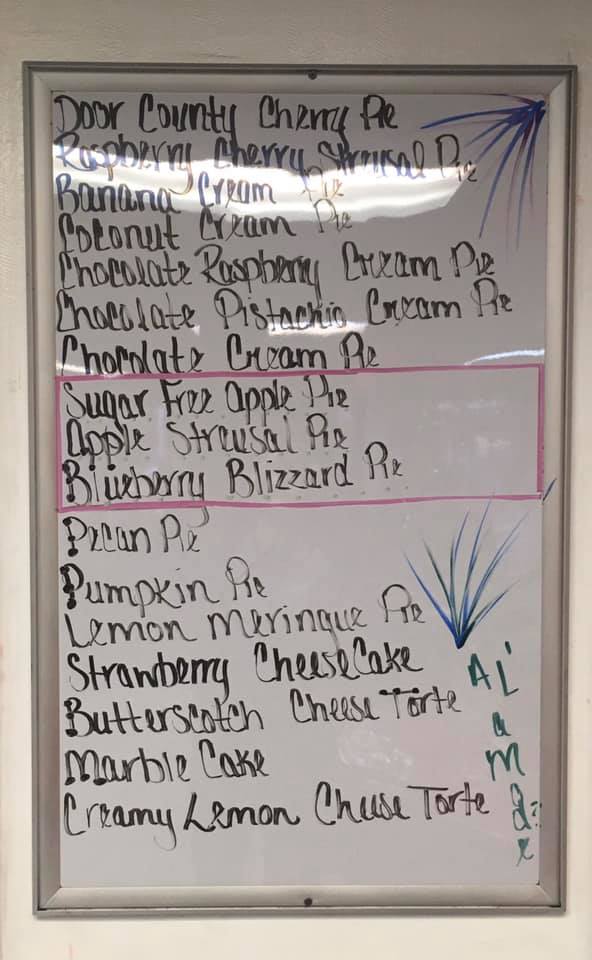 Door County Cherry Pie
Raspberry Cherry Streusal Pie
Banana Cream Pie
Coconut Cream Pie
Chocolate Raspberry Cream Pie
Chocolate Pistachio Cream Pie
Chocolate Cream Pie
Sugar Free Apple Pie
Apple Streusal Pie
Blueberry Blizzard Pie
Pecan Pie
Pumpkin Pie
Lemon Meringue Pie
Strawberry CheeseCake
Butterscotch Cheese Torte
Marble Cake
Creamy Lemon Cheese Torte
AL'
a
m
o
d?
e